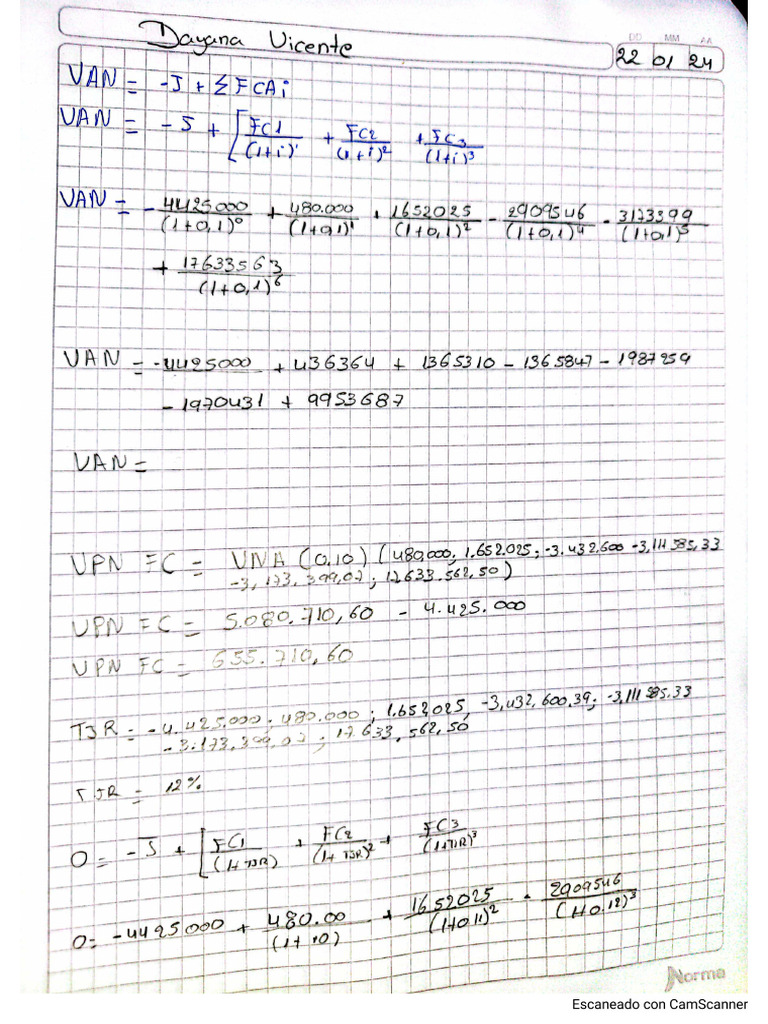 Dayana Vicente
DD MM AA
22 01 24
VAN = -I + Σ FCAi
VAN = - I + [FC1/(1+i)¹ + FC2/(1+i)² + FC3/(1+i)³
VAN = - 4425000/(1+0,1)⁰ + 480.000/(1+0,1)¹ + 1652025/(1+0,1)² - 2909546/(1+0,1)⁴ - 3173399/(1+0,1)⁵
+ 17633563/(1+0,1)⁶
VAN = -4425000 + 436364 + 1365310 - 1365847 - 1987259
- 1970431 + 9953687
VAN =
VPN FC = VNA (0,10) (480,000; 1.652.025; -3.432,600 -3,111 585,33
-3,173,399,07; 17633.562,50)
VPN FC = 5.080.710,60 - 4.425.000
VPN FC = 655.710,60
TIR = -4.425.000. 480.000; 1.652025, -3,432,600.39; -3,111 585.33
-3.173,399,07; 17 633,562,50
TIR = 12%
0 = -I + [FC1/(1+TIR) + FC2/(1+TIR)² + FC3/(1+TIR)³
0= -4425000 + 480.00/(1+10) + 1652025/(1+011)² - 2909546/(1+0.12)³
Norma
Escaneado con CamScanner